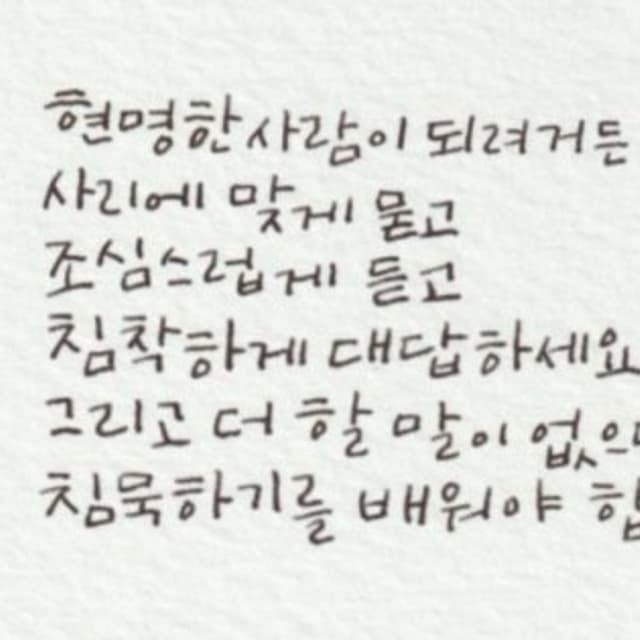 현명한 사람이 되려거든
사리에 맞게 묻고
조심스럽게 듣고
침착하게 대답하세요
그리고 더 할 말이
침묵하기를 배워야